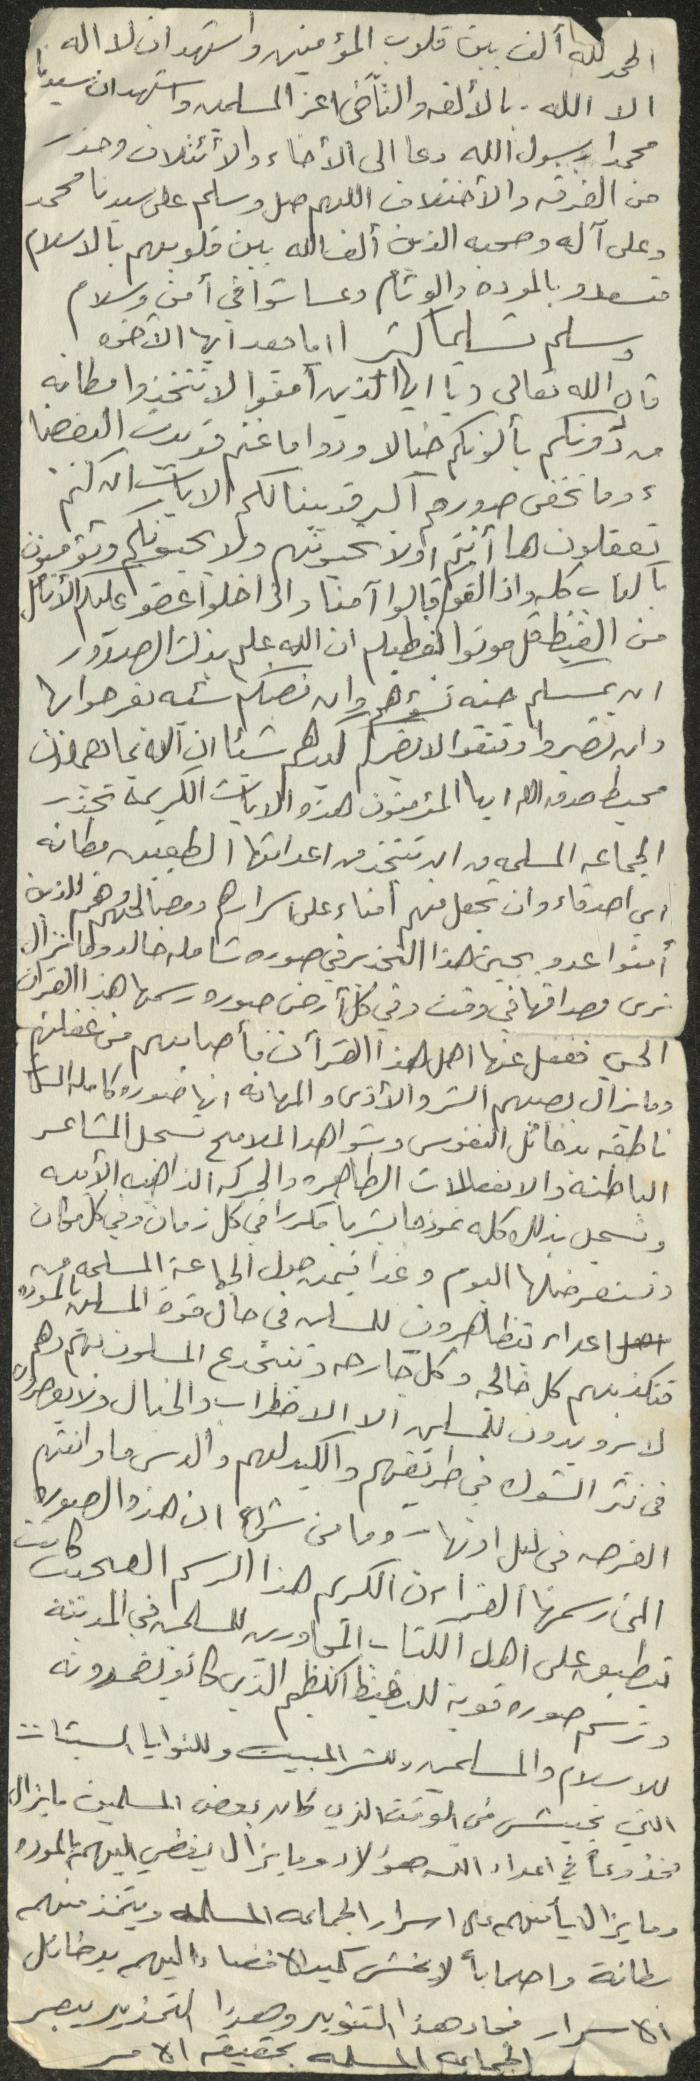 الحمد لله ألف بين قلوب المؤمنين واشهد ان لا اله
الا الله . بالألفه والتآخى اعز المسلمين واشهد ان سيدنا
محمدا رسول الله دعا الى الأخاء والأئتلاف وحذر
من الفرقه والأختلاف اللهم صل وسلم على سيدنا محمد
وعلى آله وصحبه الذين ألف الله بين قلوبهم بالاسلام
فسعدو بالموده والوئام وعاشوا في أمن وسلام
وسلم تسليما كثيرا اما بعد ايها الأخوه
قال الله تعالى (يا ايها الذين آمنوا لا تتخذوا بطانه
من دونكم يألونكم خبالا ودوا ماعنتم قد بدت البغضا
ء وما تخفى صدورهم آكبر قد بينا لكم الايات ان كنتم
تعقلون ها أنتم اولاء تحبونهم ولا يحبونكم وتؤمنون
بالكتاب كله واذا لقوكم قالوا آمنا واذا خلوا عضو عليكم الأنامل
من الغيظ قل موتوا بغيظكم ان الله عليم بذات الصدور
ان تمسسكم حسنه تسؤهم وان تصبكم سيئه يفرحوا بها
وان تصبروا وتتقوا لا يضركم كيدهم شيئا ان الله بما يعملون
محيط صدق الله ايها المؤمنون هذه الايات الكريمة تحذر
الجماعه المسلمه من ان تتخذ من اعدائها الطبعيين بطانه
اي اصدقاء وان تجعل منهم أمناء على اسرارهم ومصالحهم وهم للذين
أمنوا عدو يجئ هذا التحذير في صوره شامله خالده ما نزال
نرى مصداقها في وقت وفي كل أرض صوره رسمها هذا القرآن
الحي فغفل عنها اهل هذا القرآن فأصابهم من غفلتهم
وما يزال يصيبهم الشر والأذى والمهانه انها صوره كامله السمات
ناطقه بدخائل النفوس وشواهد الملامح تسجل المشاعر
الباطنة والانفعالات الظاهره والحركه الذاهبه الآيبه
وتسجل بذلك كله نموذجا بشريا مكررا في كل زمان وفي كل مكان
ونستعرضها اليوم وغدا فيمن حول الجماعة المسلمه من
اعداء يتظاهرون للمسلمين في حال قوة المسلمين بالموده
فتكذبهم كل خالجه وكل جارحه وينخدع المسلمون بهم وهم
لا يريدون للمسلمين الا الاضطراب والخبال ولا يقصرون
في نثر الشوك في طريقهم والكيد لهم والدس ما واتتهم
الفرصه في ليل او نهار وما من شك ان هذه الصوره
التي رسمها القرآن الكريم هذا الرسم العجيب كانت
تنطبق على اهل الكتاب المجاورين للمسلمين في المدينة
وترسم صوره قوية للغيظ الكظيم الذي كانو يضمرونه
للاسلام والمسلمين وللشر المبيت وللنوايا السيئات
التي تجيش في الوقت الذي كان بعض المسلمين مايزال
مخدوعاً في اعداء الله هؤلاء ومايزال يفضي اليهم بالموده
ومايزال يأمنهم على اسرار الجماعه المسلمه ويتخذ منهم
بطانة واصحاباً لا يخشى كيد الافضاء اليهم بدخائل
الاسرار فجاء هذا التنوير وهذا التحذير يبصر
الجماعه المسلمه بحقيقة الامر